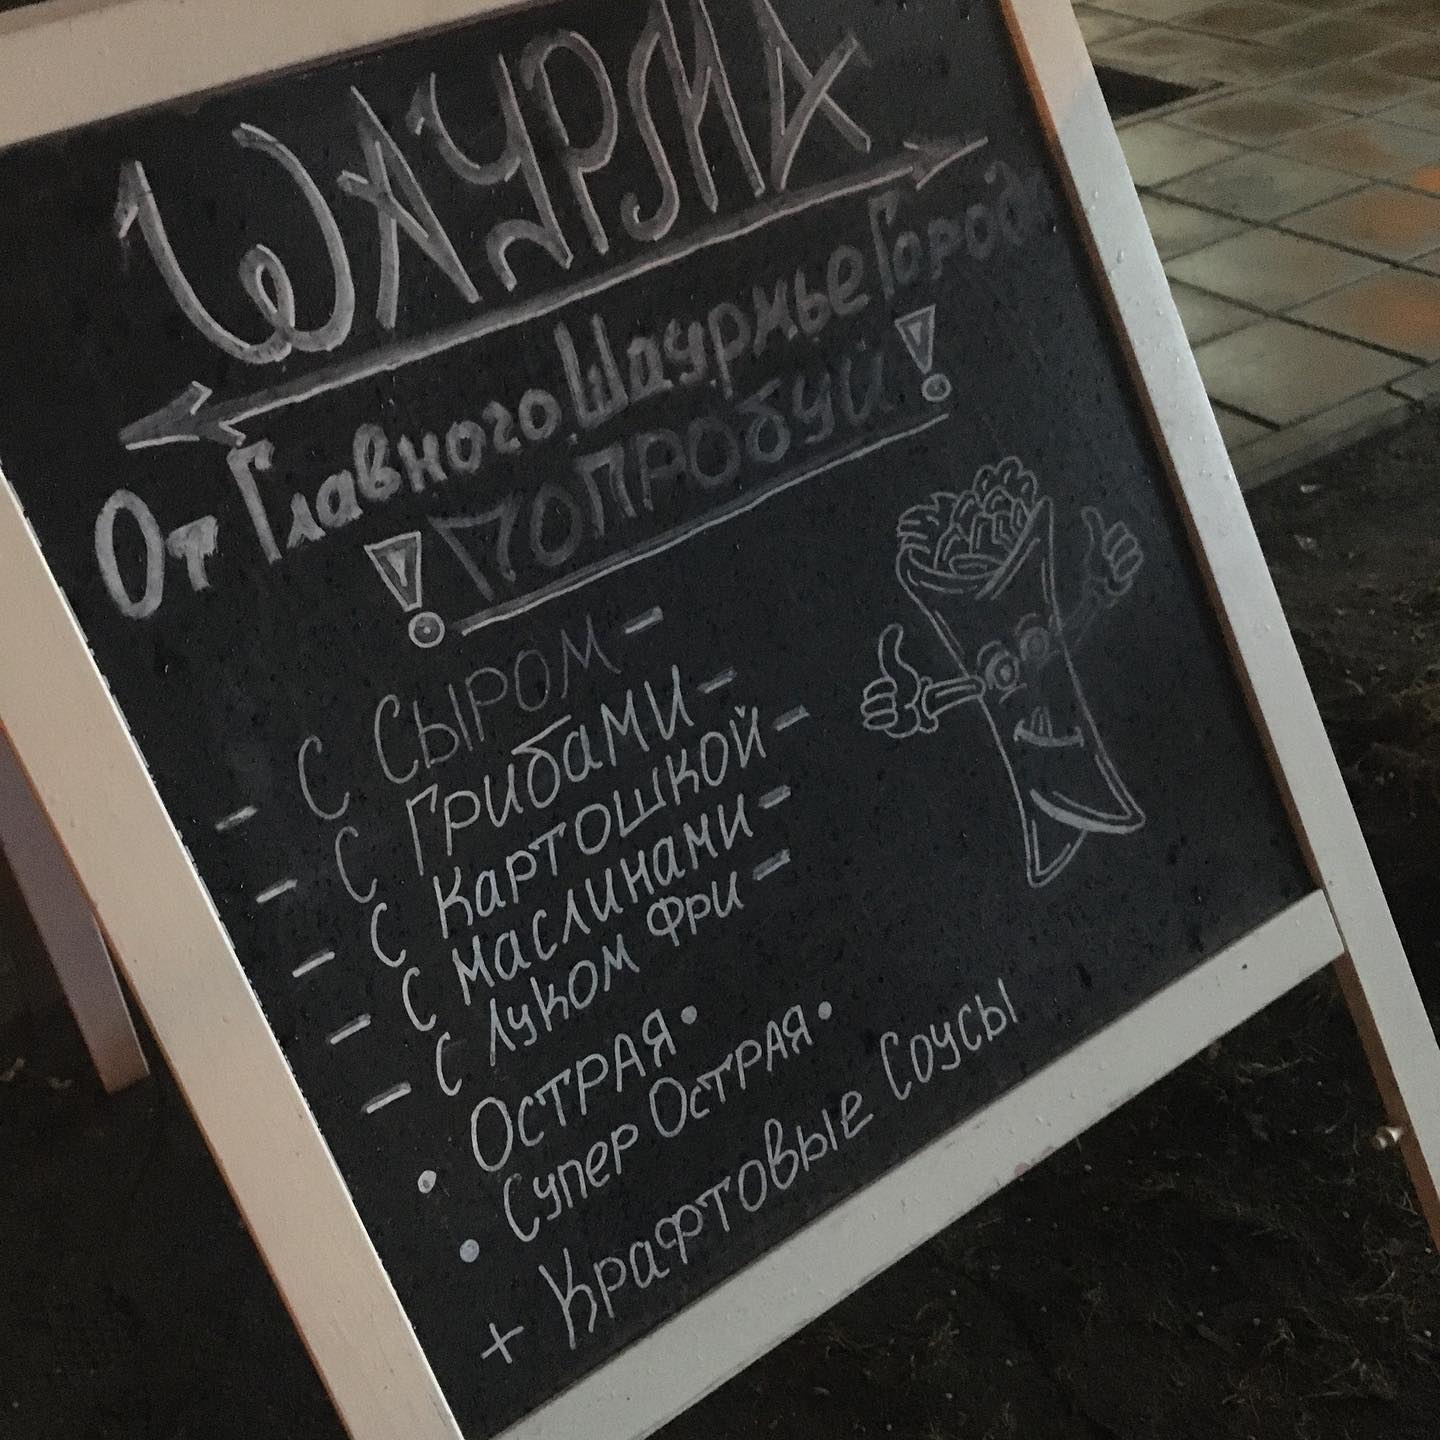 ШАУРМА
От Главного Шаурмье Города
! ПОПРОБУЙ !
- С СЫРОМ -
- С ГРИБАМИ -
- С КАРТОШКОЙ -
- С МАСЛИНАМИ -
- С ЛУКОМ ФРИ -
• ОСТРАЯ •
• СУПЕР ОСТРАЯ •
+ Крафтовые Соусы